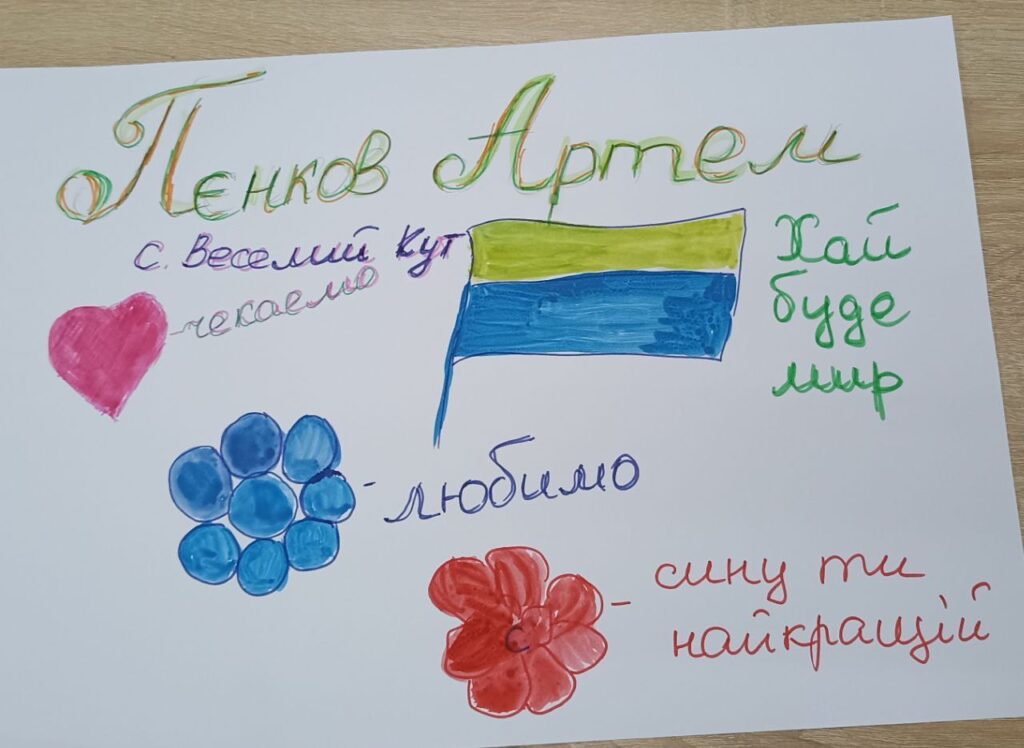 Пєнков Артем
с. Веселий Кут
- чекаємо
Хай
буде
мир
- любимо
- сину ти
найкращій
С